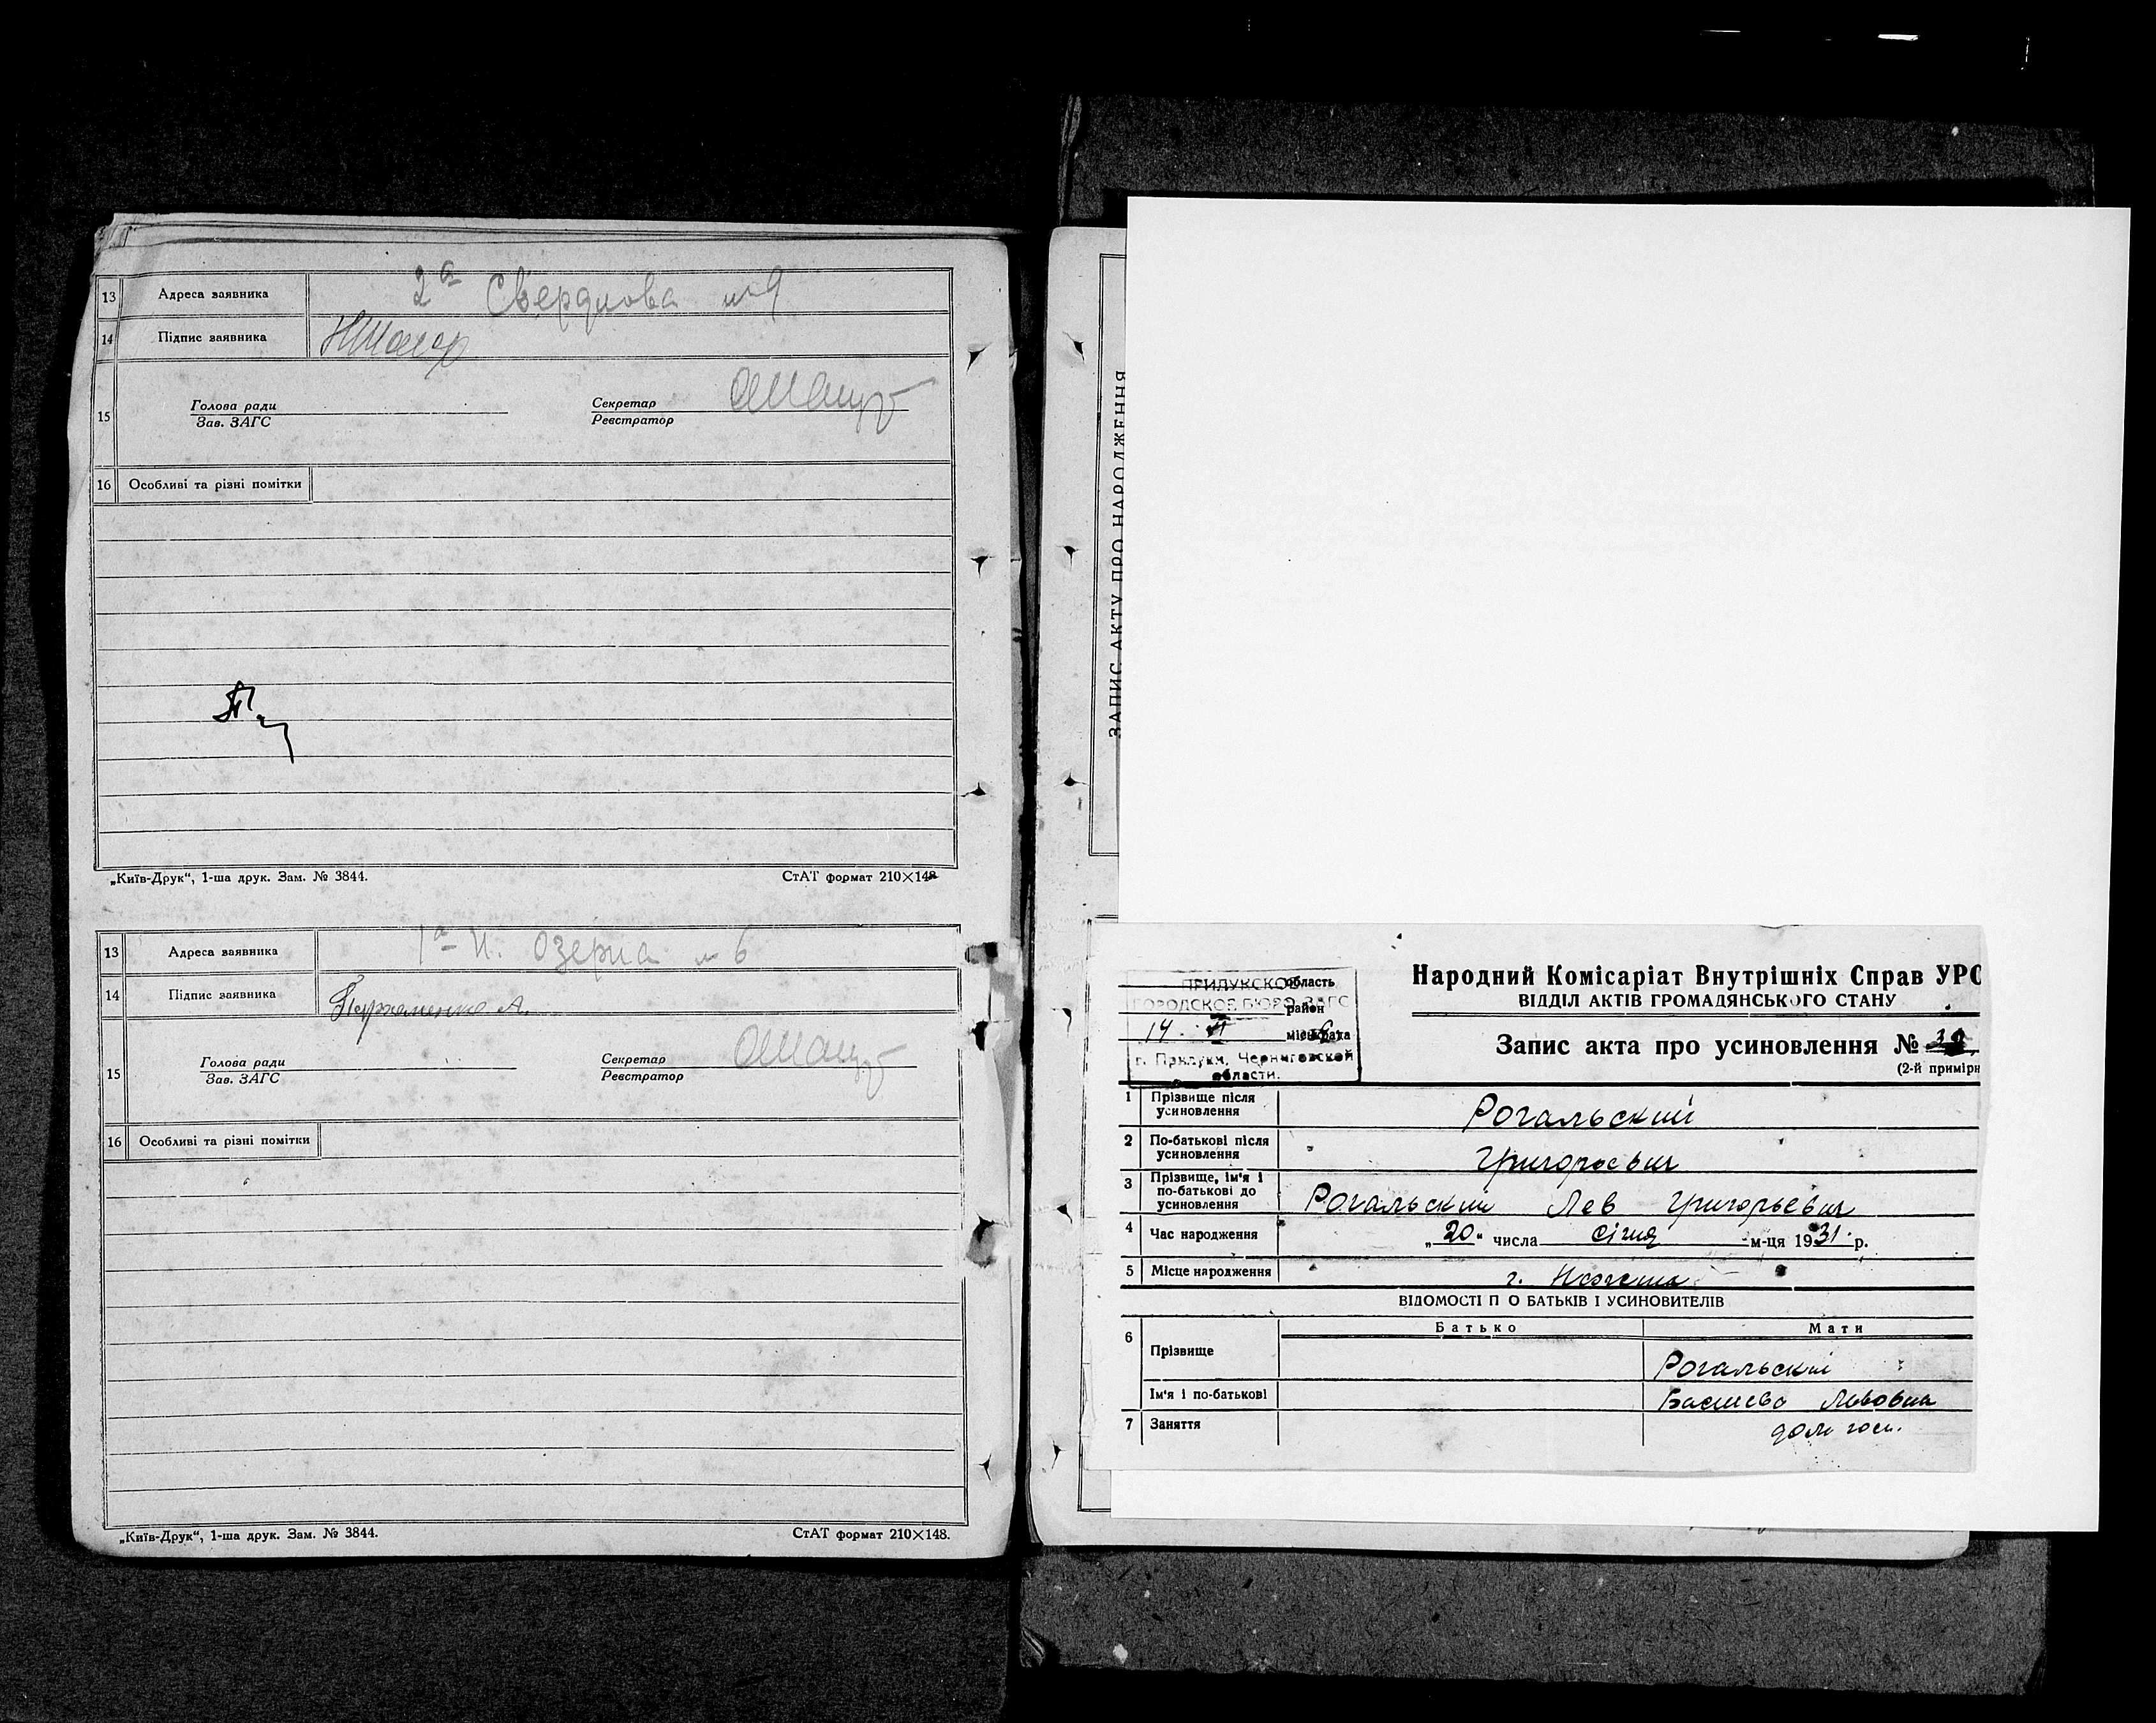 13 Адреса заявника 2а Свердлова №9
14 Підпис заявника
15 Голова ради Секретар
Зав. ЗАГС Реєстратор
16 Особливі та різні помітки
„Київ-Друк“, 1-ша друк. Зам. № 3844. СтАТ формат 210×148
13 Адреса заявника 1а Озерна № 6
14 Підпис заявника Пархоменко А.
15 Голова ради Секретар
Зав. ЗАГС Реєстратор
16 Особливі та різні помітки
„Київ-Друк“, 1-ша друк. Зам. № 3844. СтАТ формат 210×148.
ЗАПИС АКТУ ПРО НАРОДЖЕННЯ
ПРИЛУКСКОЕ область
ГОРОДСКОЕ БЮРО ЗАГС
район
14 міськрада
г. Прилуки, Черниговской
области.
Народний Комісаріат Внутрішніх Справ УРС
ВІДДІЛ АКТІВ ГРОМАДЯНСЬКОГО СТАНУ
Запис акта про усиновлення №
(2-й примірн
1 Прізвище після
усиновлення Рогальский
2 По-батькові після
усиновлення Григорьевич
3 Прізвище, ім'я і
по-батькові до
усиновлення Рогальский Лев Григорьевич
4 Час народження „20“ числа січня м-ця 1931 р.
5 Місце народження г.
ВІДОМОСТІ П О БАТЬКІВ І УСИНОВИТЕЛІВ
Батько Мати
6 Прізвище Рогальский
Ім'я і по-батькові Львовна
7 Заняття дом. госп.